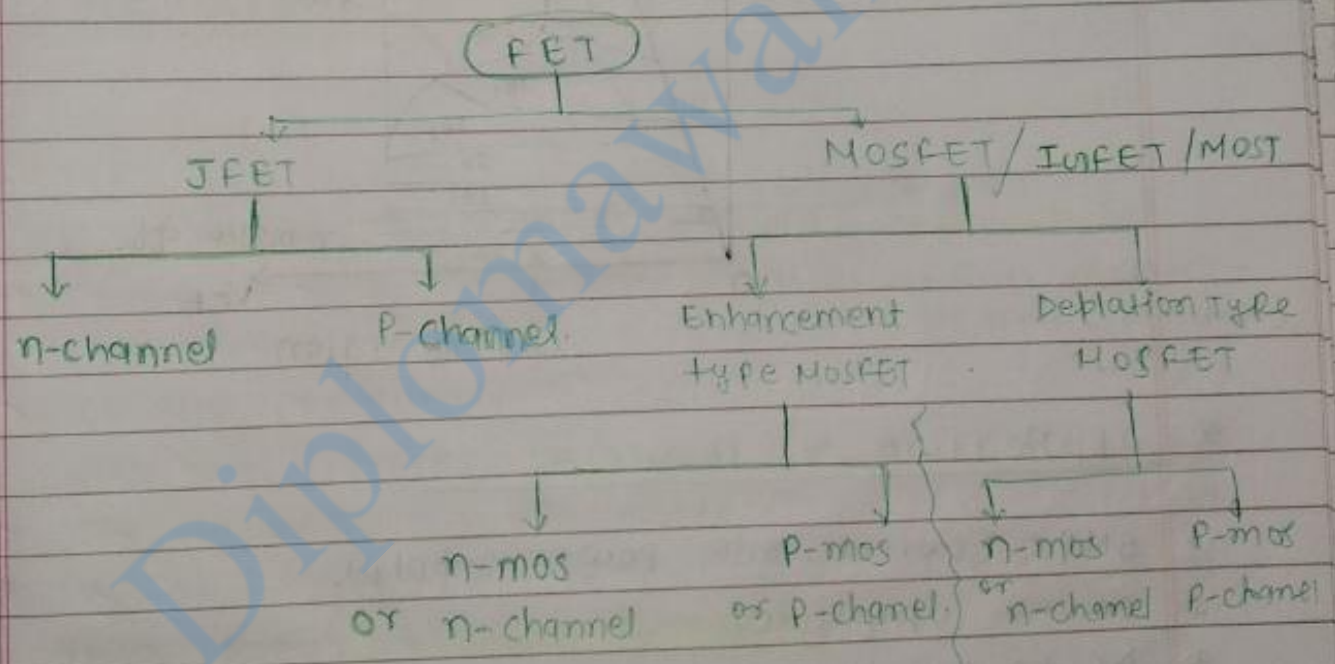 FET
JFET
MOSFET / IGFET / MOST
n-channel
P-channel.
Enhancement
type MOSFET
Deplation Type
MOSFET
n-mos
or n-channel
P-mos
or p-chanel.
n-mos
or n-chanel
P-mos
P-chanel
Diplomawal